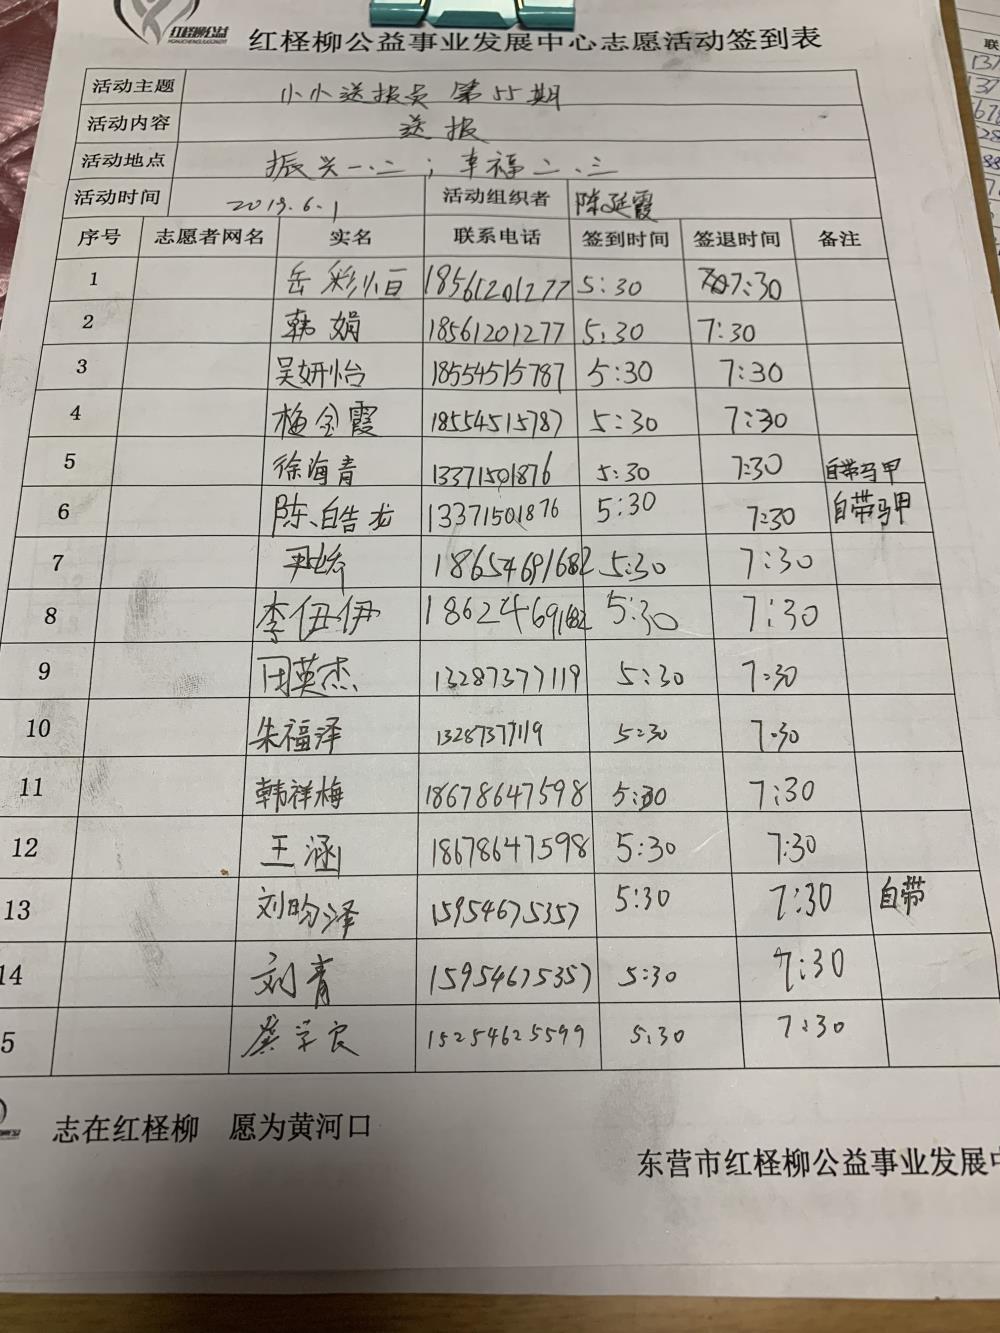 红柽柳公益
红柽柳公益事业发展中心志愿活动签到表
活动主题 小小送报员 第55期
活动内容 送报
活动地点 振兴一.二；幸福二.三
活动时间 2019.6.1 活动组织者 陈延霞
序号 志愿者网名 实名 联系电话 签到时间 签退时间 备注
1 岳彩小百 18561201277 5:30 7:30
2 韩娟 18561201277 5:30 7:30
3 吴妍怡 18554515787 5:30 7:30
4 梅金霞 18554515787 5:30 7:30
5 徐海青 13371501876 5:30 7:30 自带马甲
6 陈皓龙 13371501876 5:30 7:30 自带马甲
7 18654691682 5:30 7:30
8 李伊伊 18624691682 5:30 7:30
9 闭英杰 13287377119 5:30 7:30
10 朱福泽 13287377119 5:30 7:30
11 韩祥梅 18678647598 5:30 7:30
12 王涵 18678647598 5:30 7:30
13 刘昀泽 15954675357 5:30 7:30 自带
14 刘青 15954675357 5:30 7:30
5 15254625599 5:30 7:30
志在红柽柳 愿为黄河口
东营市红柽柳公益事业发展中